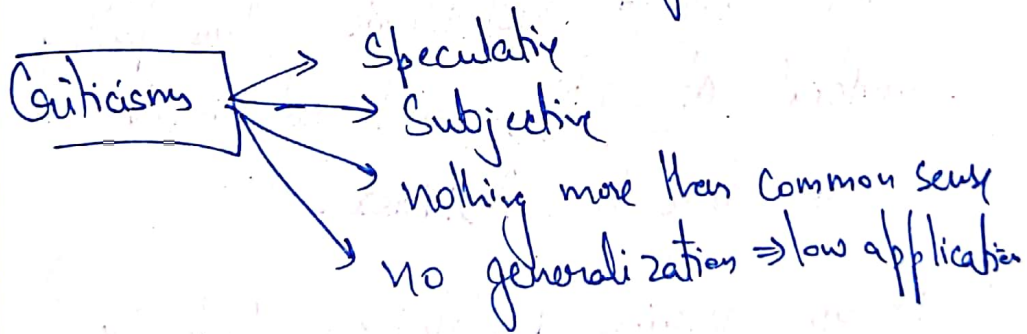 Criticisms
Speculative
Subjective
nothing more than common sense
no generalization ⇒ low application